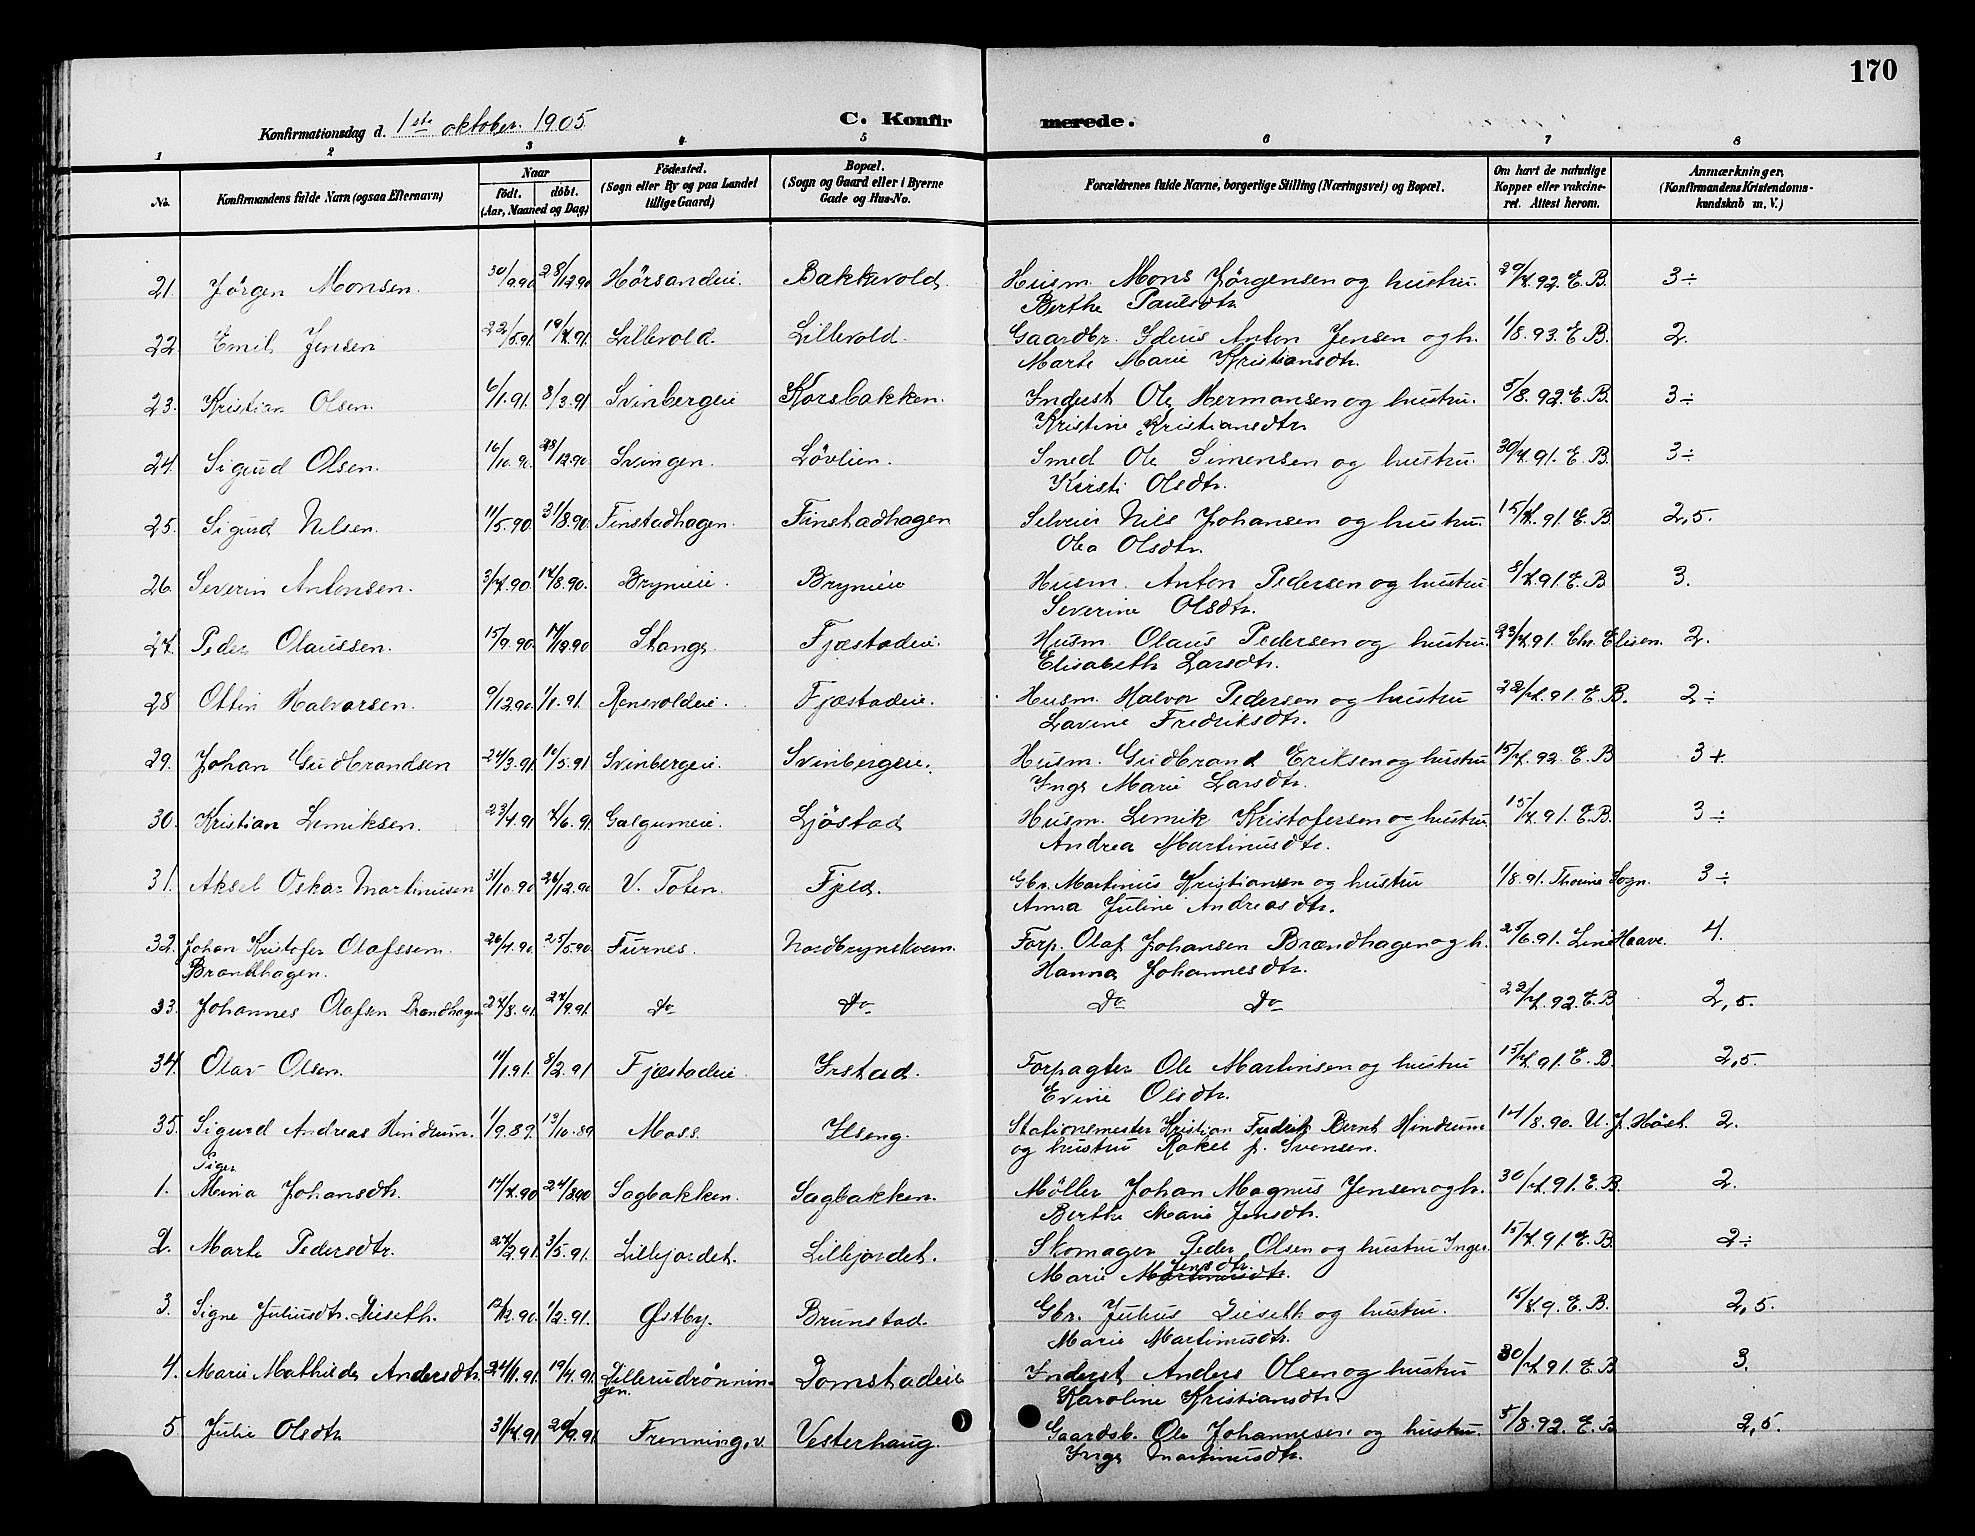 170
Konfirmationsdag d. 1ste oktober 1905
C. Konfir merede.
1 2 3 4 5 6 7 8
No. Konfirmandens fulde Navn (ogsaa Efternavn) Naar født. døbt. (Aar, Maaned og Dag) Fødested. (Sogn eller By og paa Landet tillige Gaard) Bopæl. (Sogn og Gaard eller i Byerne Gade og Hus-No. Forældrenes fulde Navne, borgerlige Stilling (Næringsvei) og Bopæl. Om havt de naturlige Kopper eller vakcineret. Attest herom. Anmærkninger, (Konfirmandens Kristendomskundskab m. V.)
21. Jørgen Monsen. 30/9.90 28/12.90 Hørsandeie. Bakkevold. Husm. Mons Jørgensen og hustru. 20/7.92. E. B. 3÷
Berthe Paulsdtr.
22. Emil Jensen 22/5.91 19/7.91. Lillevold. Lillevold. Gaardbr. Anton Jensen og h. 1/8.93. E. B. 2.
Marte Marie Kristiansdtr.
23. Kristian Olsen. 6/1.91. 8/3.91 Svinbergeie Korsbakken. Inderst Ole Hermansen og hustru. 5/8.92. E. B. 3÷
Kristine Kristiansdtr.
24. Sigurd Olsen. 16/10.90. 28/12.90. Svingen. Løvlien. Smed Ole Simensen og hustru. 30/7.91. E. B. 3÷
Kirsti Olsdtr.
25. Sigurd Nilsen. 11/5.90. 31/8.90. Finstadhagen. Finstadhagen Selveier Nils Johansen og hustru. 15/7.91. E. B. 2,5.
Olea Olsdtr.
26. Severin Antonsen. 3/7.90. 14/8.90. Brynieie. Brynieie Husm. Anton Pedersen og hustru 8/7.91. E. B 3.
Severine Olsdtr.
27. Peder Olaussen. 15/9.90. 14/12.90 Stange. Fjæstadeie. Husm. Olaus Pedersen og hustru. 23/7.91. Chr. Elisen. 2.
Elisabeth Larsdtr.
28 Ottin Halvorsen. 9/12.90. 1/1.91. Renevoldeie. Fjæstadeie. Husm. Halvor Pedersen og hustru 22/7.91. E. B. 2÷
Lavine Fredriksdtr.
29. Johan Gudbrandsen 24/3.91. 10/5.91 Svinbergeie. Svinbergeie. Husm. Gudbrand Eriksen og hustru 15/7.92. E. B 3+
Inge Marie Larsdtr.
30. Kristian Lemiksen. 23/4.91 7/6.91. Galgumeie. Ljøstad Husm. Lemik Kristofersen og hustru. 15/7.91. E. B. 3÷
Andrea Martinusdtr.
31. Aksel Oskar Martinusen 31/10.90 26/12.90 V. Toten. Fjeld. Gbr. Martinus Kristiansen og hustru 1/8.91. Thorine Sogn. 3÷
Anna Juline Andreasdtr.
32. Johan Kristofer Olafssen. 26/4.90. 25/5.90. Furnes. Nordbrynskvern. Forp. Olaf Johansen Brændhagen og h. 25/6.91. Line Haave. 4.
Brændhagen. Hanna Johannesdtr.
33. Johannes Olafsen Brændhagen 27/8.91. 27/9.91. do do do do 22/7.92. E. B 2,5.
34. Olav Olsen. 11/1.91. 8/2.91 Fjæstadeie Irstad. Forpagter Ole Martinsen og hustru 15/7.91. E. B. 2,5
Evine Olsdtr.
35. Sigurd Andreas Hindrum. 1/9.89. 13/10.89 Moss. Ilseng. Stationsmester Kristian Fredrik Bernt Hindrum 14/8.90. U. J. Høst. 2.
og hustru Rakel f. Svensen.
Piger.
1. Mina Johansdtr. 14/7.90 24/8.90 Sagbakken. Sagbakken. Møller Johan Magnus Jensen og h. 30/7.91. E. B. 2.
Berthe Marie Jensdtr.
2. Marte Pedersdtr. 27/2.91. 3/5.91. Lillejordet. Lillejordet. Skomager Peder Olsen og hustru Inger 15/7.91. E. B. 2÷
Marie Martinusdtr. Jensdtr.
3. Signe Juliusdtr. Dieseth. 12/12.90. 1/2.91. Østby. Brunstad. Gbr. Julius Dieseth og hustru. E. B. 2,5.
Marie Martinusdtr.
4. Marie Mathilde Andersdtr. 24/1.91. 19/4.91. Lillerudrønnin- Domstadeie Inderst Anders Olsen og hustru 30/7.91. E. B 3.
gen. Karoline Kristiansdtr.
5 Julie Olsdtr 31/7.91 20/9.91. Frenning, v. Vesterhaug. Gaardsb. Ole Johannesen og hustru. 5/8.92. E. B 2,5.
Inge Martinusdtr.